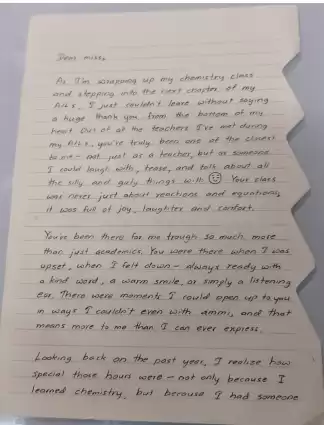 Dear miss,
As I'm wrapping up my chemistry class
and stepping into the next chapter of my
A/L's, I just couldn't leave without saying
a huge thank you from the bottom of my
heart. Out of all the teachers I've met during
my A/Ls, you're truly been one of the closest
to me - not just as a teacher, but as someone
I could laugh with, tease, and talk about all
the silly and girly things with 😊 Your class
was never just about reactions and equations,
it was full of joy, laughter and comfort.
You've been there for me trough so much, more
than just academics. You were there when I was
upset, when I felt down - always ready with
a kind word, a warm smile, or simply a listening
ear. There were moments I could open up to you
in ways I couldn't even with ammi, and that
means more to me than I can ever express.
Looking back on the past year, I realize how
special those hours were - not only because I
learned chemistry, but because I had someone